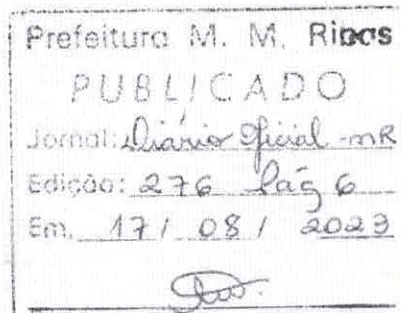 Prefeitura M. M. Ribas
PUBLICADO
Jornal: Diário Oficial - MR
Edição: 276 Pág 6
Em, 17 / 08 / 2023